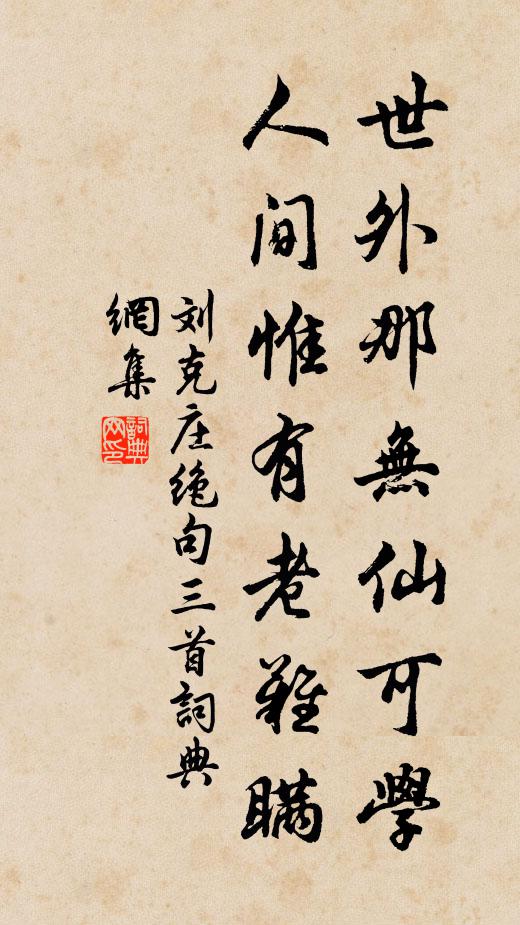 世外那無仙可學
人间惟有老難瞒
刘克庄绝句三首詞典
網集
詞典
网印